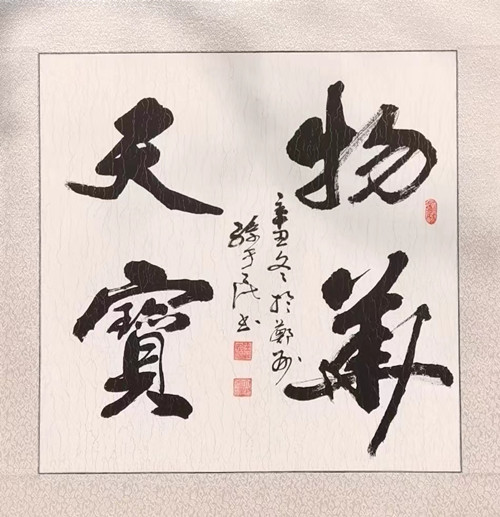 物華
天寶
辛丑冬於鄭州
孫于民书